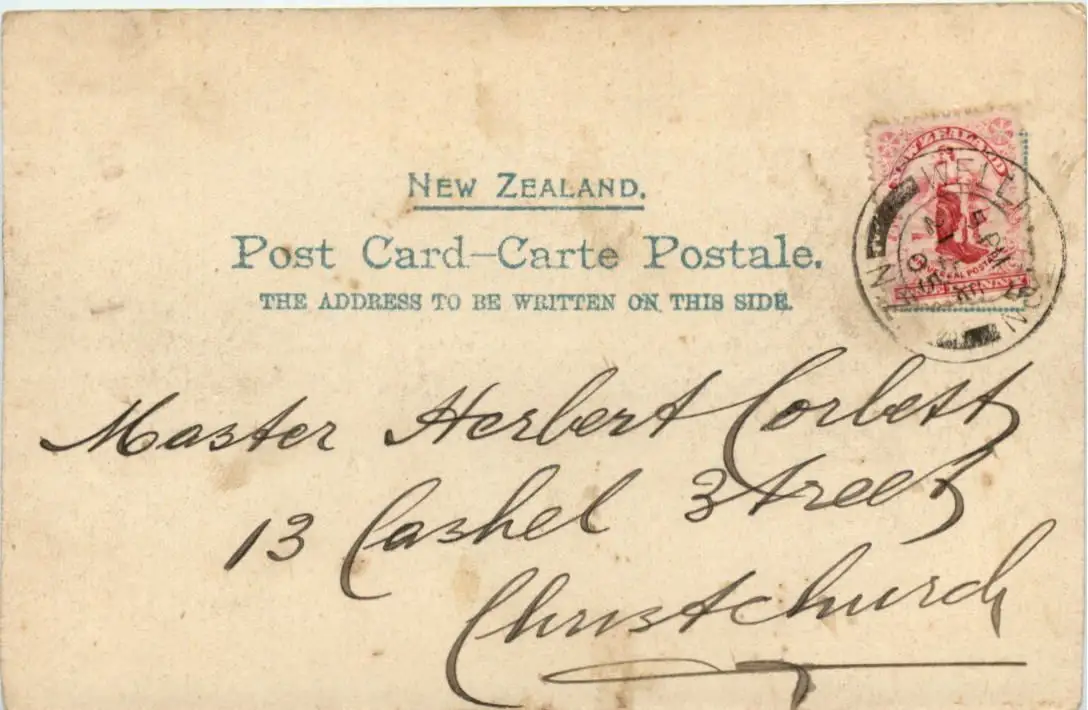 NEW ZEALAND.
Post Card–Carte Postale.
THE ADDRESS TO BE WRITTEN ON THIS SIDE.
NEW ZEALAND
UNIVERSAL POSTAGE
WELLINGTON N.Z
Master Herbert Corbett
13 Cashel Street
Christchurch